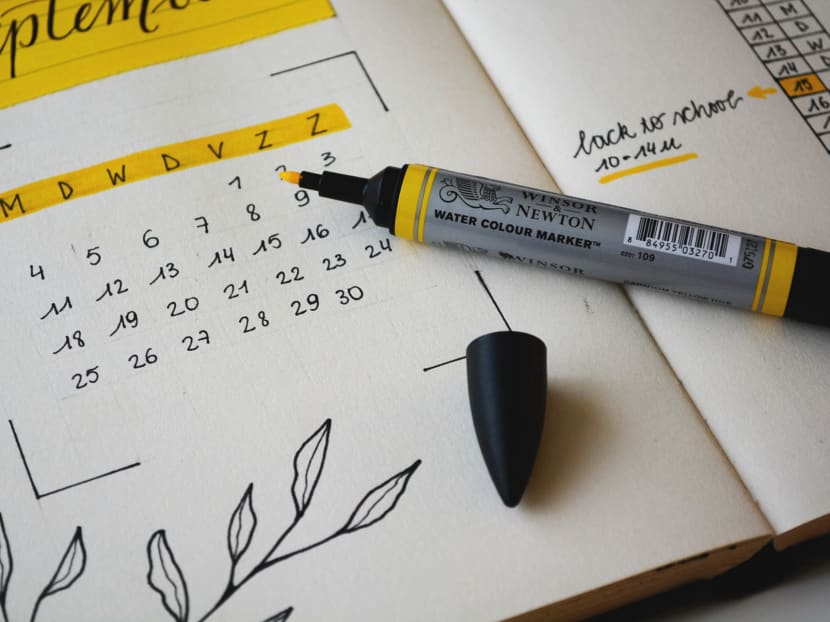 ptem
M D W D V Z Z
1 2 3
4 5 6 7 8 9
11 12 13 14 15 16
18 19 20 21 22 23 24
25 26 27 28 29 30
back to school
10-14u
10
11 M
12 D
13 W
14 D
15
16
WINSOR
&
NEWTON
WATER COLOUR MARKER™
8 84955 03270 1
0201 109
WINSOR
CADMIUM YELLOW HUE